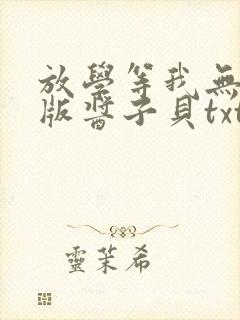 放學等我無
版醬子貝txt
靈茉希